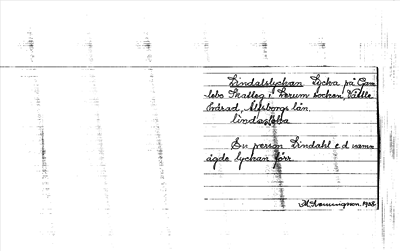 Lindalslyckan Lycka på Gam
lebo Skatteg i Lerum socken, Vättle
härad, Älfsborgs län.
lindaslöka
En person Lindahl e.d namn
ägde lyckan förr.
1925